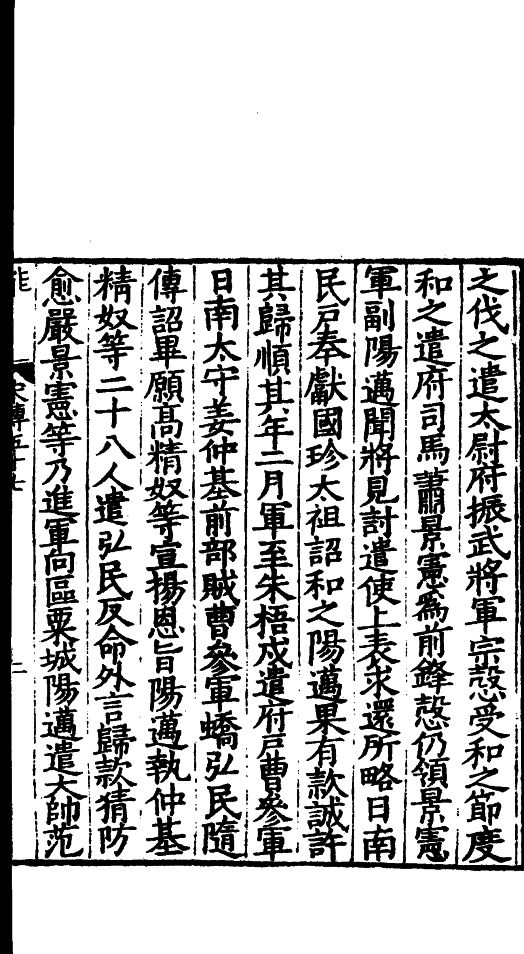 之伐之遣太尉府振武將軍宗愨受和之節度
和之遣府司馬蕭景憲爲前鋒愨仍領景憲
軍副陽邁聞將見討遣使上表求還所略日南
民戶奉獻國珍太祖詔和之陽邁果有款誠許
其歸順其年二月軍至朱梧戍遣府戶曹參軍
日南太守姜仲基前部賊曹參軍蟜弘民隨
傳詔畢願高精奴等宣揚恩旨陽邁執仲基
精奴等二十八人遣弘民反命外言歸款猜防
愈嚴景憲等乃進軍向區粟城陽邁遣大帥范
史傳五十七
二